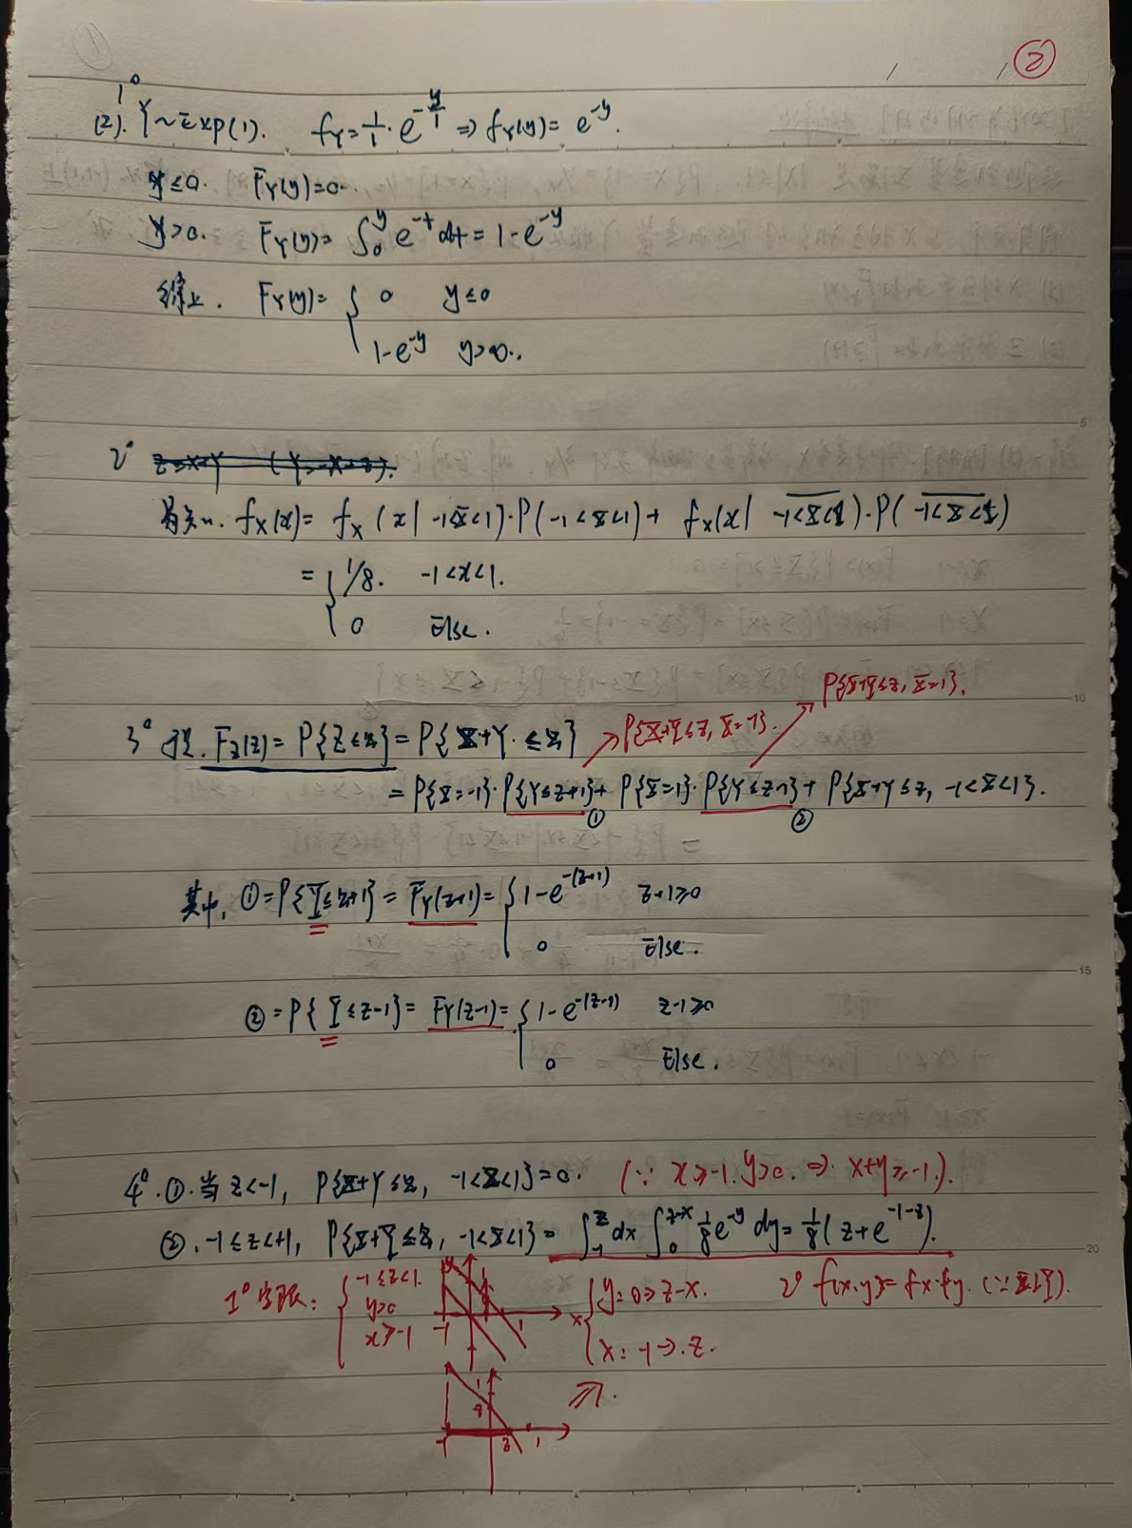 ②
1°
(2). Y~Exp(1). fY=1/1·e^(-y/1) ⇒ fY(y)= e^(-y).
y≤0. FY(y)=0.
y>0. FY(y)= ∫_0^y e^(-t) dt = 1-e^(-y)
综上. FY(y)= { 0 y≤0
1-e^(-y) y>0.
2°
fX(x)= fX(x| -1<X<1)·P(-1<X<1)+ fX(x| \overline{-1<X<1})·P(\overline{-1<X<1})
= { 1/8. -1<x<1.
0 Else.
P{X+Y≤z, X=1}.
3° FZ(z)= P{Z≤z}= P{X+Y≤z} P{X+Y≤z, X=-1}.
= P{X=-1}·P{Y≤z+1}+ P{X=1}·P{Y≤z-1}+ P{X+Y≤z, -1<X<1}.
① ②
其中, ①=P{Y≤z+1}= FY(z+1)= { 1-e^(-(z+1)) z+1≥0
0 Else.
②=P{Y≤z-1}= FY(z-1)= { 1-e^(-(z-1)) z-1≥0
0 Else.
4°.①.当z<-1, P{X+Y≤z, -1<X<1}=0. (∵ x≥-1. y>0. ⇒ x+y≥-1.).
②. -1≤z<+1, P{X+Y≤z, -1<X<1}= ∫_{-1}^z dx ∫_0^{z-x} 1/8 e^(-y) dy= 1/8(z+e^(-1-z)).
1° { -1≤z<1.
y>0
x≥-1
y
-1 1 x
{ y: 0→z-x.
x: -1→z.
2° f(x·y)=fx·fy. (∵X⊥Y).
1
z
-1 z 1